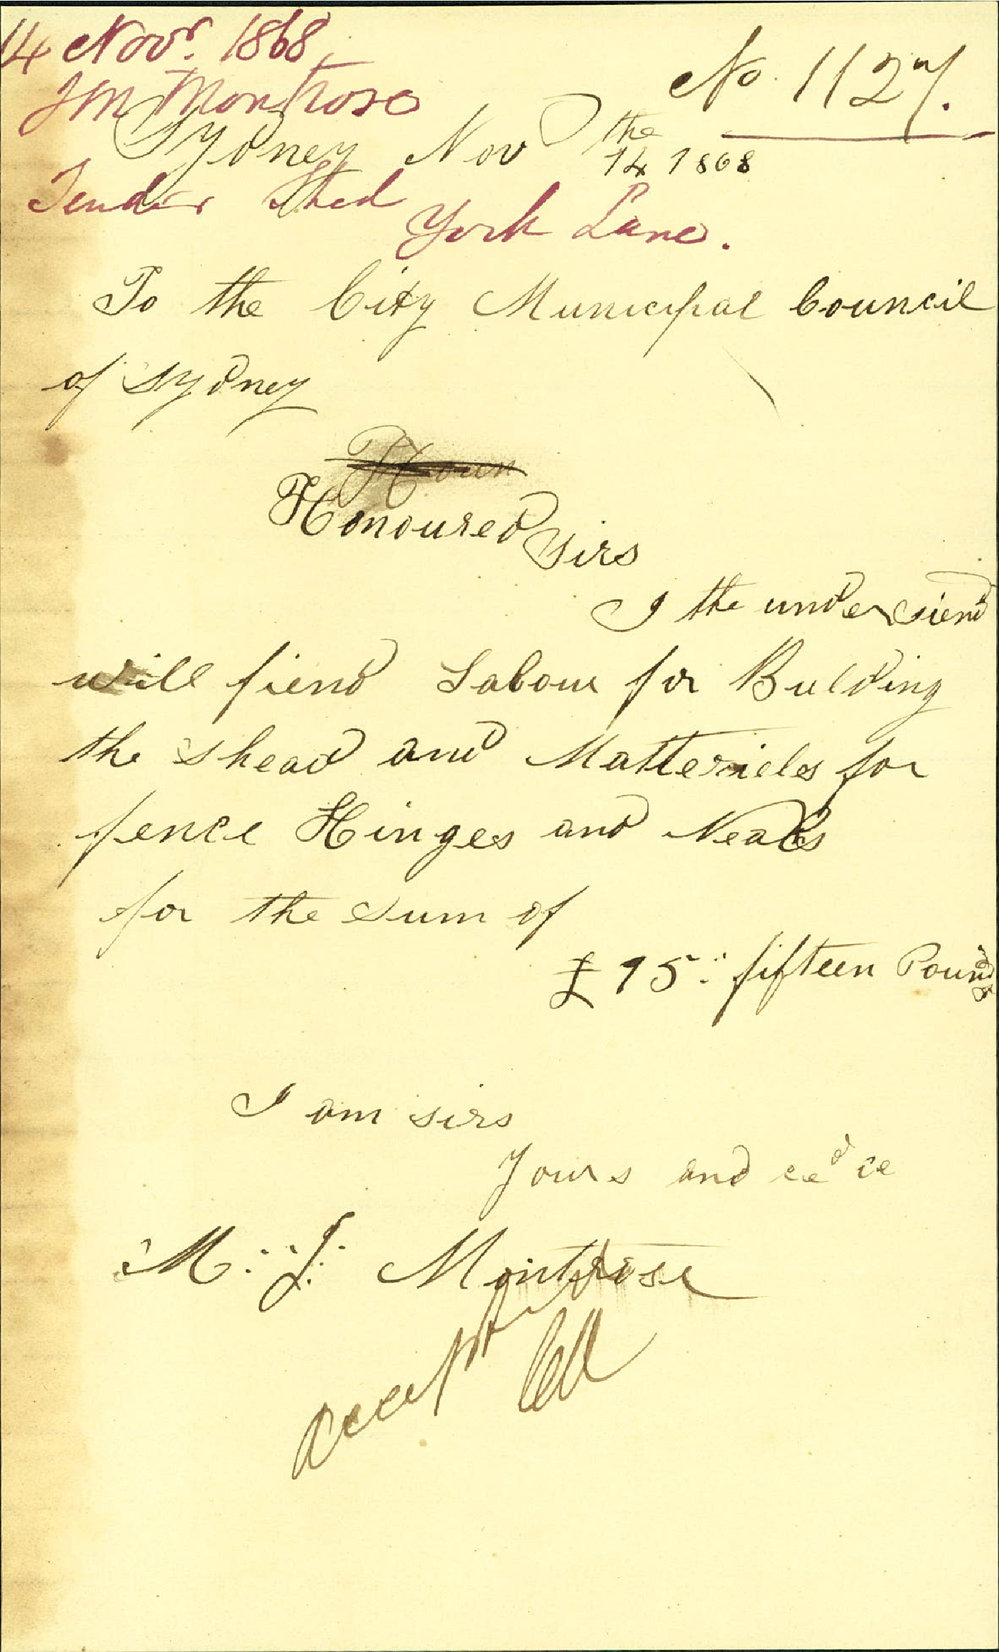 14 Novr. 1868.
J M Montrose
No. 1127.
Sydney Nov the 14 1868
Tender Shed
York Lane.
To the City Municipal Council
of Sydney
Houn
Honoured Sirs
I the undersiend
will fiend Labour for Bulding
the shead and Matterieles for
fence Hinges and Neals
for the sum of
£ 15 : fifteen Pounds
I am sirs
Yours and
M : J : Montrose
accepted